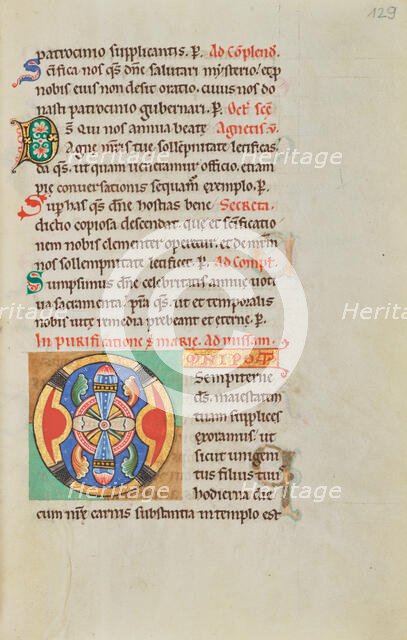 129
patrocinio supplicantis. p. Ad Cōplend.
Sc̄ifica nos q̄s dn̄e salutari mysterio. et p̄
nobis eius non desit oratio. cuius nos do
nasti patrocinio gubernari. P.
D̄s qui nos annua beate Agnetis v̄
martyris tue sollēpnitate letificas.
da q̄s. ut quam veneramur officio. etiam
pie conversationis sequam̄ exemplo. P.
Sup has q̄s dn̄e hostias bene Secreta
dictio copiosa descendat. que et sc̄ificatio
nem nobis clementer operetur. et de
nos sollempnitate letificet. P. Ad Compl.
Sumpsimus dn̄e celebritatis annue voti
va sacramenta. p̄sta q̄s. ut et temporalis
nobis vite remedia prebeant et eterne. P.
In purificatione s̄ marie. Ad missam.
OMNIPOT̄
Sempiterne
d̄s. maiestatem
tuam supplices
exoramus. ut
sicut unigeni
tus filius tuus
hodierna die
cum nr̄e carnis substantia in templo est
Heritage
Heritage
Heritage
Heritage
Heritage
Heritage
Heritage
Heritage